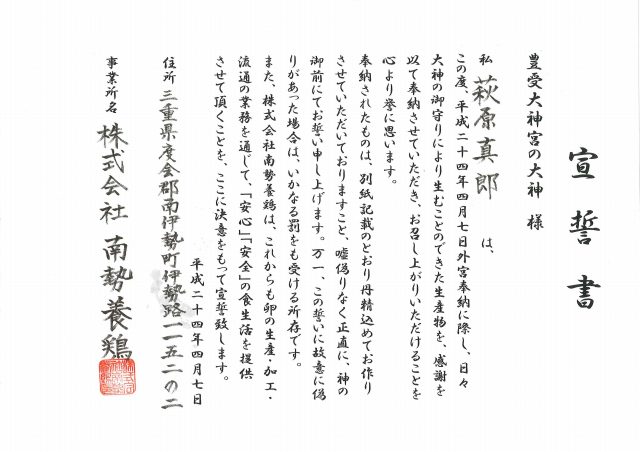 宣誓書
豊受大神宮の大神 様
私 萩原真郎 は、
この度、平成二十四年四月七日外宮奉納に際し、日々
大神の御守りにより生むことのできた生産物を、感謝を
以て奉納させていただき、お召し上がりいただけることを
心より誉に思います。
奉納されたものは、別紙記載のとおり丹精込めてお作り
させていただいておりますこと、嘘偽りなく正直に、神の
御前にてお誓い申し上げます。万一、この誓いに故意に偽
りがあった場合は、いかなる罰をも受ける所存です。
また、株式会社南勢養鶏は、これからも卵の生産・加工・
流通の業務を通じて、「安心」「安全」の食生活を提供
させて頂くことを、ここに決意をもって宣誓致します。
平成二十四年四月七日
住所 三重県度会郡南伊勢町伊勢路一一五二の二
事業所名 株式会社 南勢養鶏